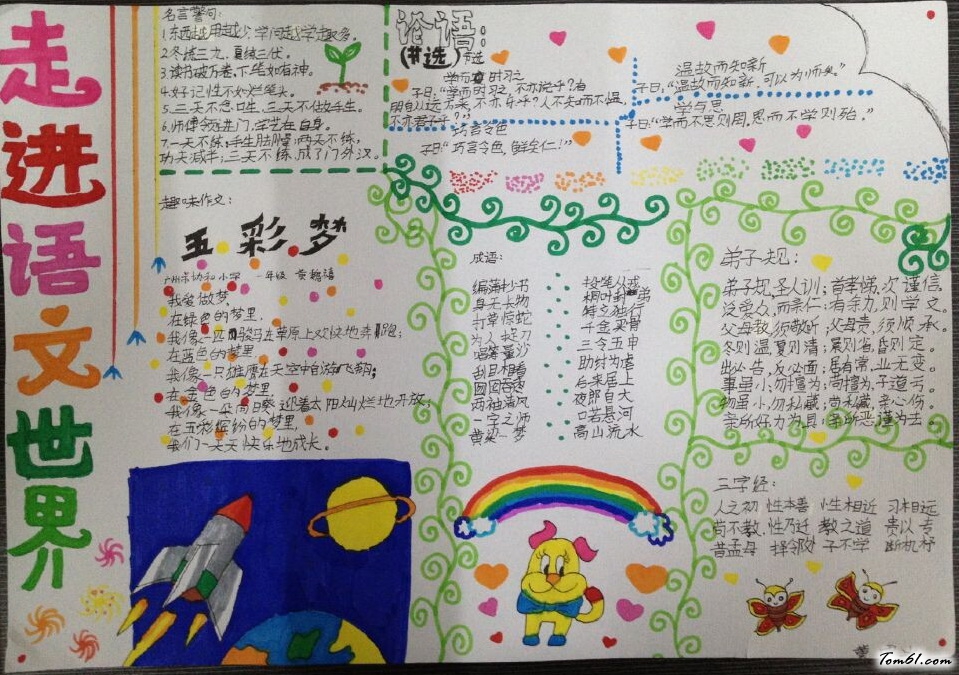 走进语文世界
名言警句:
1.东西越用越少,学问越学越多。
2.冬练三九,夏练三伏。
3.读书破万卷,下笔如有神。
4.好记性不如烂笔头。
5.三天不念口生,三天不做手生。
6.师傅领进门,学艺在自身。
7.一天不练手生脚慢;两天不练,
功天减半;三天不练,成了门外汉。
论语:
(节选)
学而时习之
子曰:“学而时习之,不亦说乎?有
朋自远方来,不亦乐乎?人不知而不愠,
不亦君子乎?”
巧言令色
子曰:“巧言令色,鲜矣仁!”
温故而知新
子曰:“温故而知新,可以为师矣。”
学与思
子曰:“学而不思则罔,思而不学则殆。”
趣味作文:
五彩梦
广州市协和小学 一年级
我爱做梦,
在绿色的梦里,
我像一匹骏马在草原上欢快地奔跑;
在蓝色的梦里
我像一只雄鹰在天空中自由飞翔;
在金色的梦里
我像一朵向日葵迎着太阳灿烂地开放;
在五彩缤纷的梦里,
我们一天天快乐地成长。
成语:
编蒲抄书 投笔从戎
身无长物 桐叶封弟
打草惊蛇 特立独行
为人捉刀 千金买骨
唱筹量沙 三令五申
刮目相看 助纣为虐
囫囵吞枣 后来居上
两袖清风 夜郎自大
一字之师 口若悬河
黄粱一梦 高山流水
弟子规:
弟子规,圣人训;首孝悌,次谨信,
泛爱众,而亲仁;有余力,则学文。
父母教,须敬听;父母责,须顺承。
冬则温,夏则清;晨则省,昏则定。
出必告,反必面;居有常,业无变。
事虽小,勿擅为;苟擅为,子道亏。
物虽小,勿私藏;苟私藏,亲心伤。
亲所好,力为具;亲所恶,谨为去。
三字经:
人之初 性本善 性相近 习相远
苟不教 性乃迁 教之道 贵以专
昔孟母 择邻处 子不学 断机杼
Tom61.com